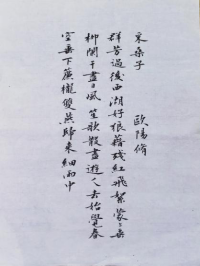 采桑子 歐陽脩
群芳過後西湖好狼藉殘紅飛絮蒙々垂
柳闌干盡日風笙歌散盡遊人去始覺春
空垂下簾櫳雙燕歸來細雨中